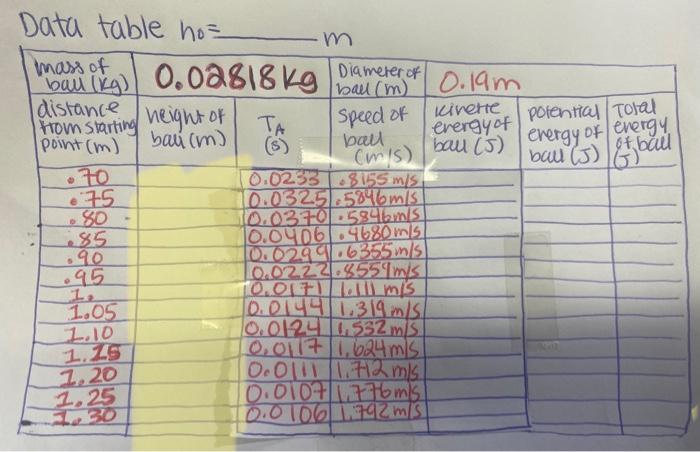 Data table ho=______ m
mass of ball (kg) 0.02818 kg Diameter of ball (m) 0.19m
distance from starting point (m) height of ball (m) TA (s) speed of ball (m/s) kinetic energy of ball (J) potential energy of ball (J) Total energy of ball (J)
.70 0.0233 .8155 m/s
.75 0.0325 .5846 m/s
.80 0.0370 .5846 m/s
.85 0.0406 .4680 m/s
.90 0.0299 .6355 m/s
.95 0.0222 .8559 m/s
1. 0.0171 1.111 m/s
1.05 0.0144 1.319 m/s
1.10 0.0124 1.532 m/s
1.15 0.0117 1.624 m/s
1.20 0.0111 1.712 m/s
1.25 0.0107 1.776 m/s
1.30 0.0106 1.792 m/s